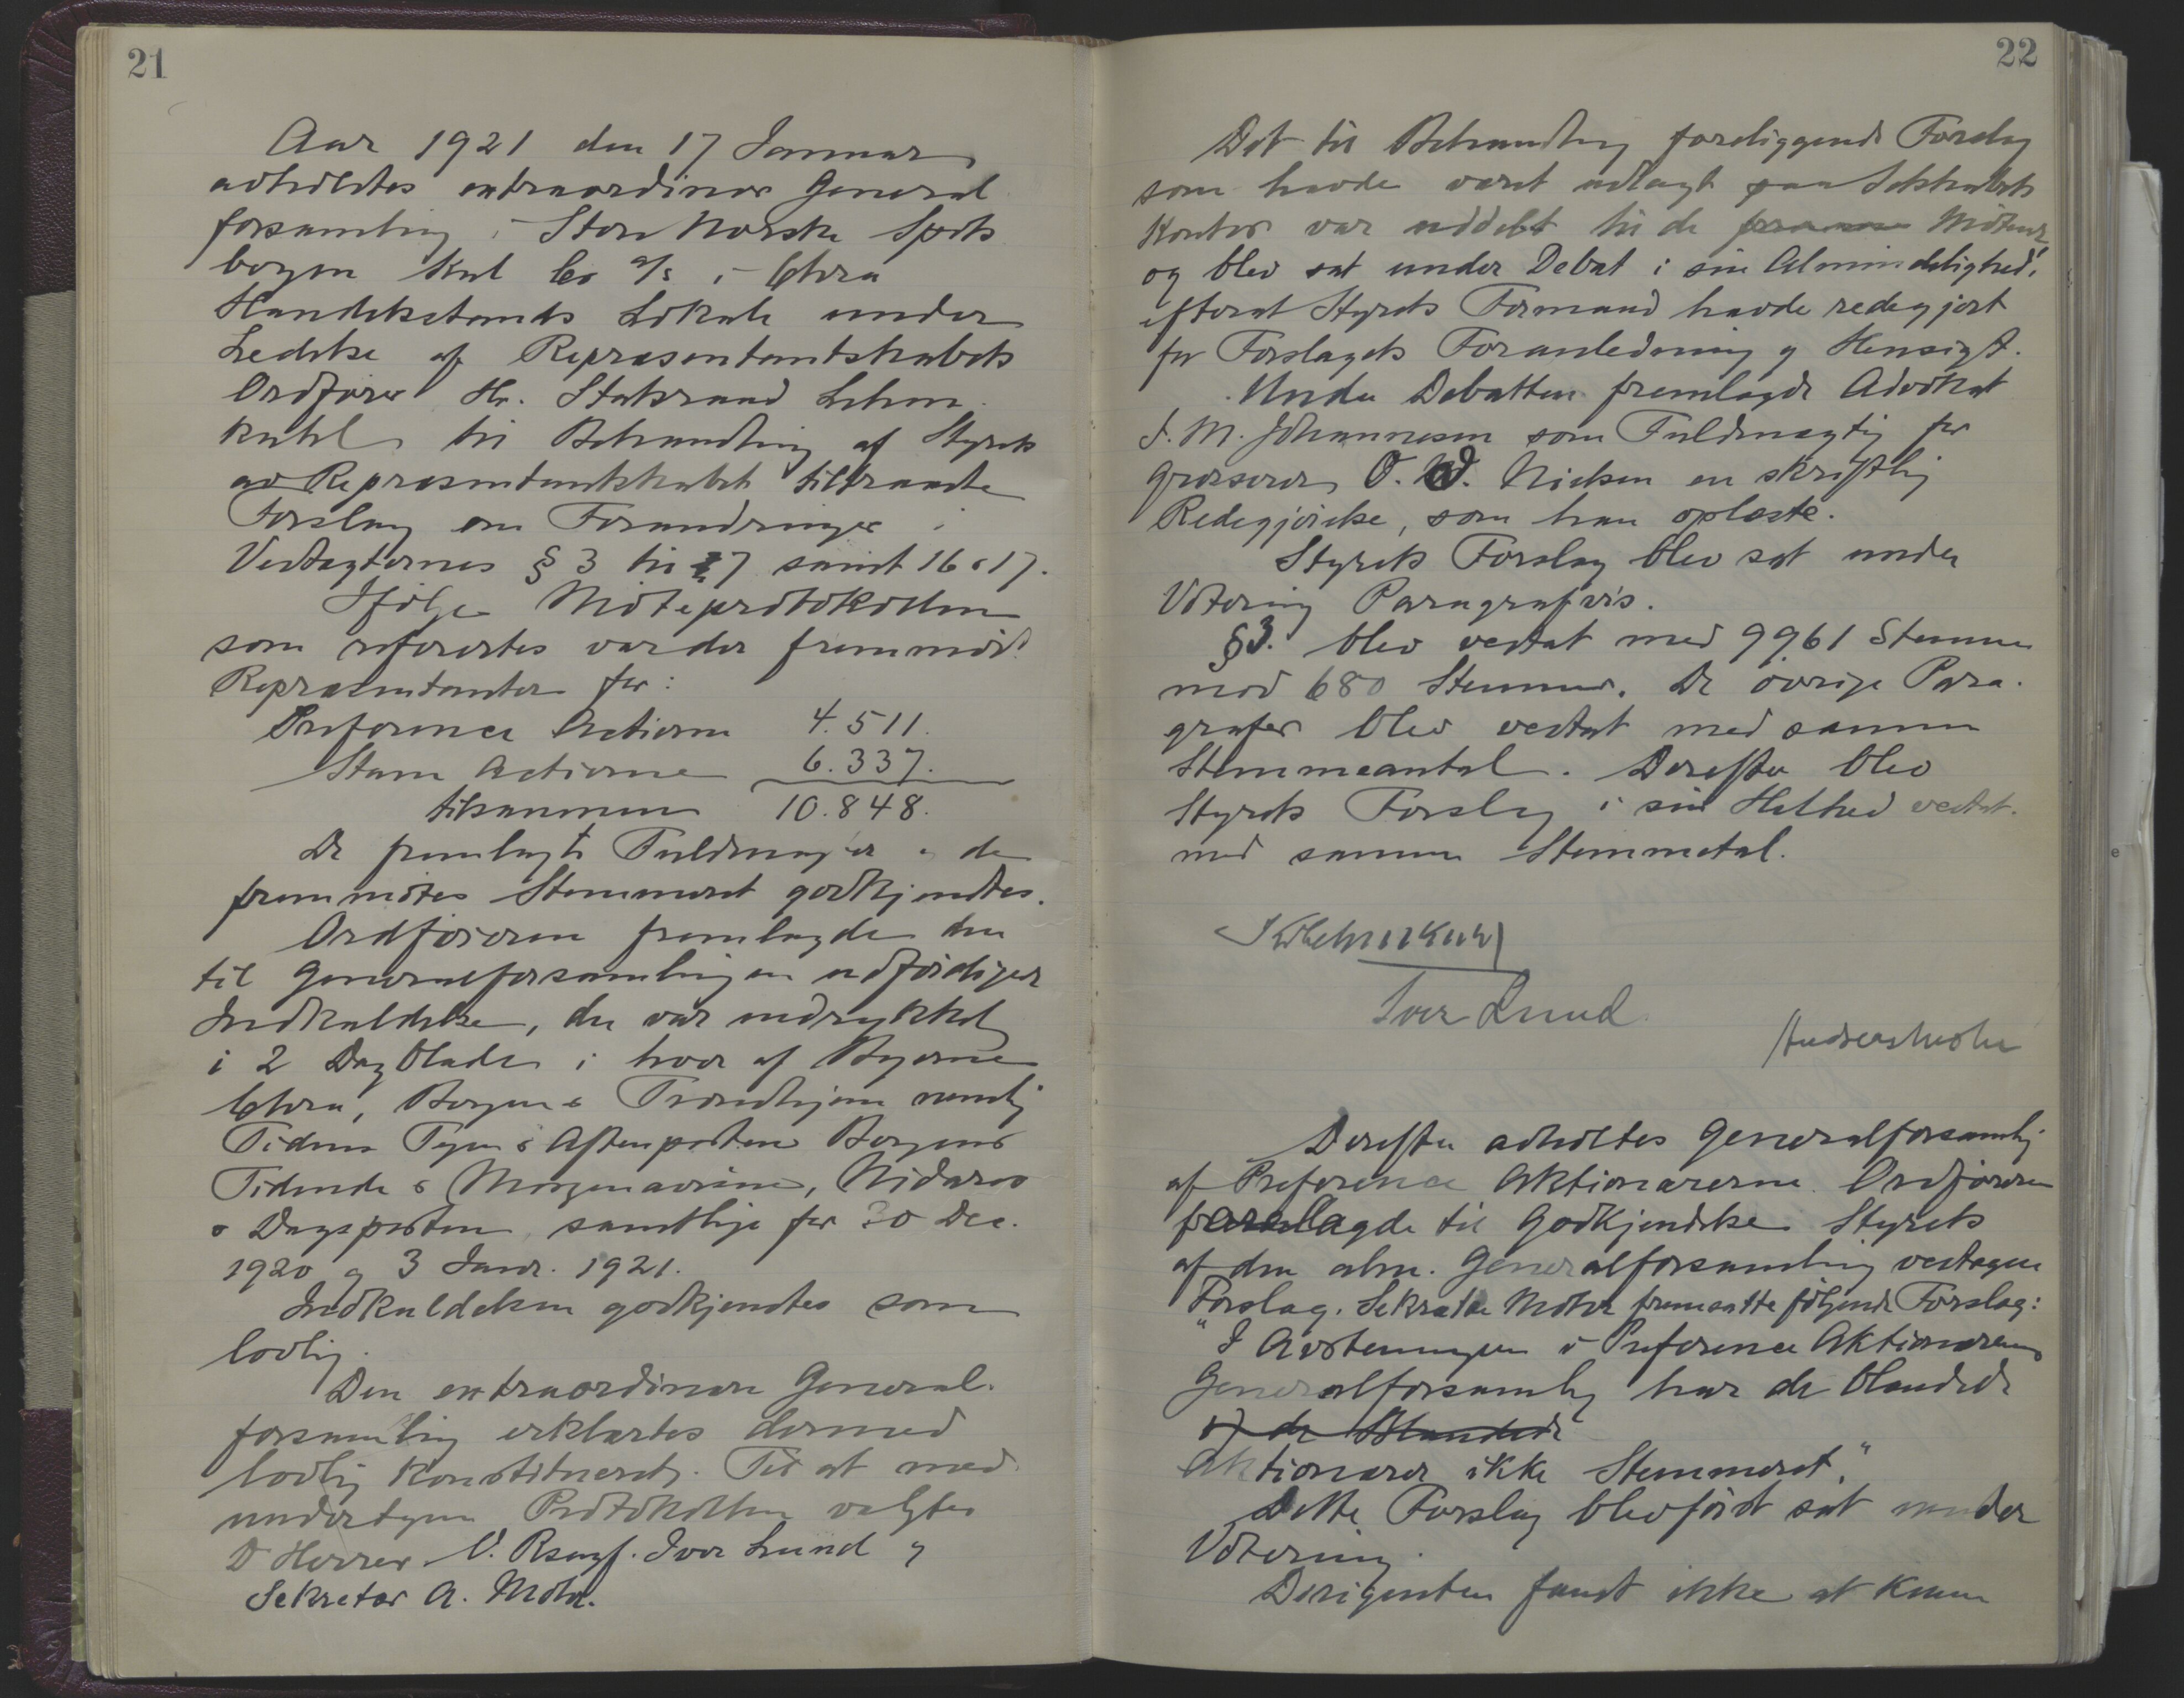 21
Aar 1921 den 17 Januar
avholdtes extraordinær General
forsamling i Store Norske Spits
bergen Kul Co A/S i Chra
Handelsstands Lokale under
Ledelse af Repræsentantskabets
Ordfører Hr. Statsraad Lehm
kuhl til Behandling af Styrets
av Repræsentantskabet tiltraadte
Forslag om Forandringer i
Vedtægternes § 3 til 7 samt 16 & 17.
Ifølge Møteprotokollen
som refertes var der fremmødt
Repræsentanter for:
Preference Actierne 4.511.
Stam Actierne 6.337.
tilsammen 10.848.
De fremlagte Fuldmagter & de
fremmøtes Stemmeret godkjendtes.
Ordføreren fremlagde den
til Generalforsamlingen udfærdiget
Indkaldelse, der var indrykket
i 2 Dagblade i hver af Byerne
Chra, Bergen & Trondhjem nemlig
Tidens Tegn & Aftenposten Bergens
Tidende & Morgenavisen, Nidaros
& Dagsposten, samtlige for 30 Dec.
1920 og 3 Janr. 1921.
Indkaldelsen godkjendtes som
lovlig.
Den extraordinære General
forsamling erklærtes dermed
lovlig konstitueret. Til at med
undertegne Protokollen valgtes
D'Herrer O. Rsagf. Iver Lund og
Sekretær A. Mohr.
22
Det til Behandling foreliggende Forslag
som havde været udlagt paa Selskabets
Kontor var uddelt til de Møtende
og blev sat under Debat i sin Almindelighed,
efterat Styrets Formand havde redegjort
for Forslagets Foranledning og Hensigt.
Under Debatten fremlagde Advokat
J. M. Johannesen som Fuldmægtig for
Grosserer O. W. Nielsen en skriftlig
Redegjørelse, som han oplæste.
Styrets Forslag blev sat under
Votering Paragrafvis.
§3. blev vedtat med 9961 Stemmer
mod 680 Stemmer. De øvrige Para-
grafer blev vedtat med samme
Stemmeantal. Derefter blev
Styrets Forslag i sin Helhed vedtat
med samme Stemmetal.
Lehmkuhl
Iver Lund
Andreas Mohr
Derefter avholdtes Generalforsamling
af Preference Aktionærerne. Ordføreren
forelagde til Godkjendelse Styrets
af den alm. Generalforsamling vedtagne
Forslag. Sekretær Mohr fremsatte følgende Forslag:
"I Avstemningen i Preference Aktionærernes
Generalforsamling har de blandede
af de Blandede
Aktionærer ikke Stemmeret."
Dette Forslag blev først sat under
Votering.
Dirigenten fandt ikke at kunne